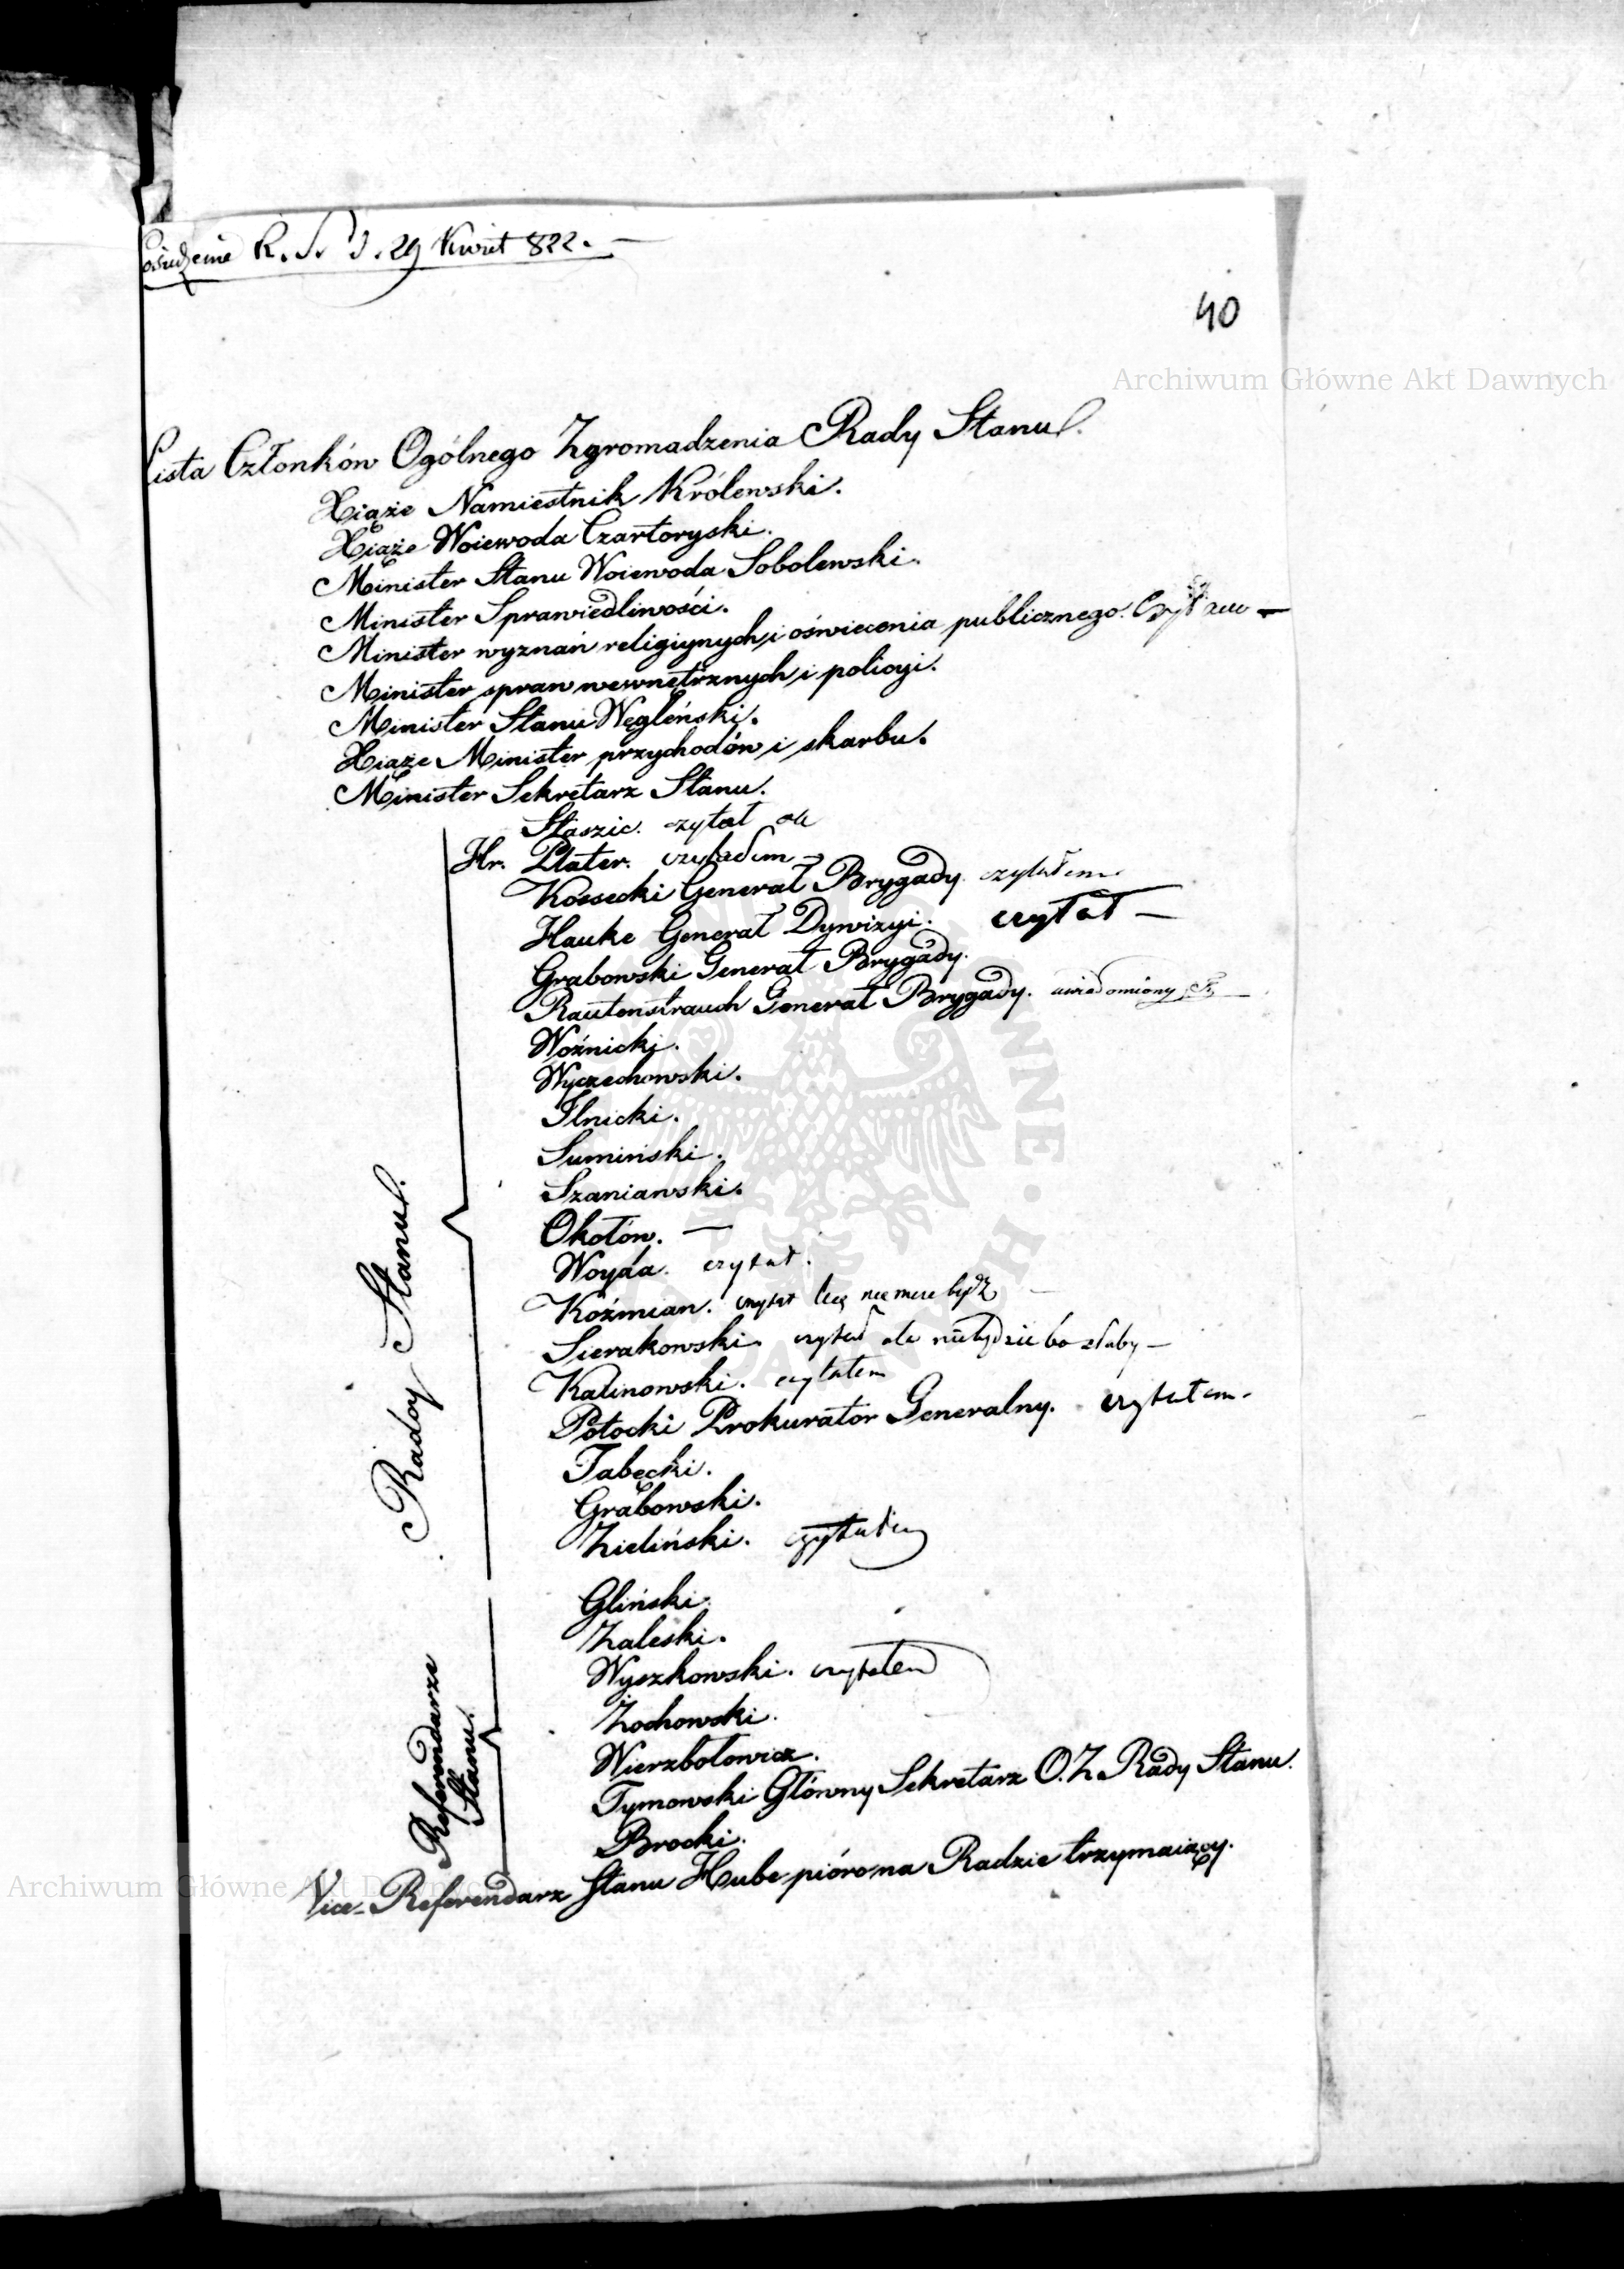 Posiedzenie R. S. d. 29 Kwiet 822. —
40
Archiwum Główne Akt Dawnych
Lista Członków Ogólnego Zgromadzenia Rady Stanu.
Xiąże Namiestnik Królewski.
Xiąże Woiewoda Czartoryski.
Minister Stanu Woiewoda Sobolewski.
Minister Sprawiedliwości.
Minister wyznań religiynych i oświecenia publicznego.
Minister spraw wewnętrznych i policyi.
Minister Stanu Węgleński.
Xiąże Minister przychodów i skarbu.
Minister Sekretarz Stanu.
Staszic. czytał
Hr. Plater. czytałem —
Kossecki Generał Brygady. czytałem
Hauke Generał Dywizyi. czytał —
Grabowski Generał Brygady.
Rautenstrauch Generał Brygady. uwiadomiony
Woźnicki.
Wyczechowski.
Ilnicki.
Sumiński.
Szaniawski.
Okołów. —
Woyda. czytał.
Koźmian. czytał lecz nie może bydź
Sierakowski. czytał ale niebędzie bo słaby —
Kalinowski. czytałem
Potocki Prokurator Generalny. czytałem.
Tabęcki.
Grabowski.
Zieliński. czytałem
Rady Stanu.
Gliński.
Zaleski.
Wyszkowski. czytałem
Żochowski.
Wierzbołowicz.
Tymowski Główny Sekretarz O. Z. Rady Stanu.
Brocki.
Referendarze
Stanu.
Vice-Referendarz Stanu Hube pióro na Radzie trzymaiący.
Archiwum Główne Akt Dawnych